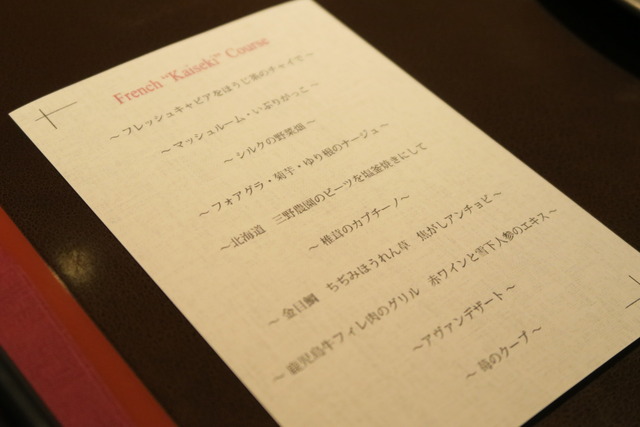 French "Kaiseki" Course
～フレッシュキャビアをほうじ茶のチャイで～
～マッシュルーム・いぶりがっこ～
～シルクの野菜畑～
～フォアグラ・菊芋・ゆり根のナージュ～
～北海道　三野農園のビーツを塩釜焼きにして
～椎茸のカプチーノ～
～金目鯛　ちぢみほうれん草　焦がしアンチョビ～
～鹿児島牛フィレ肉のグリル　赤ワインと雪下人参のエキス～
～アヴァンデザート～
～苺のクープ～